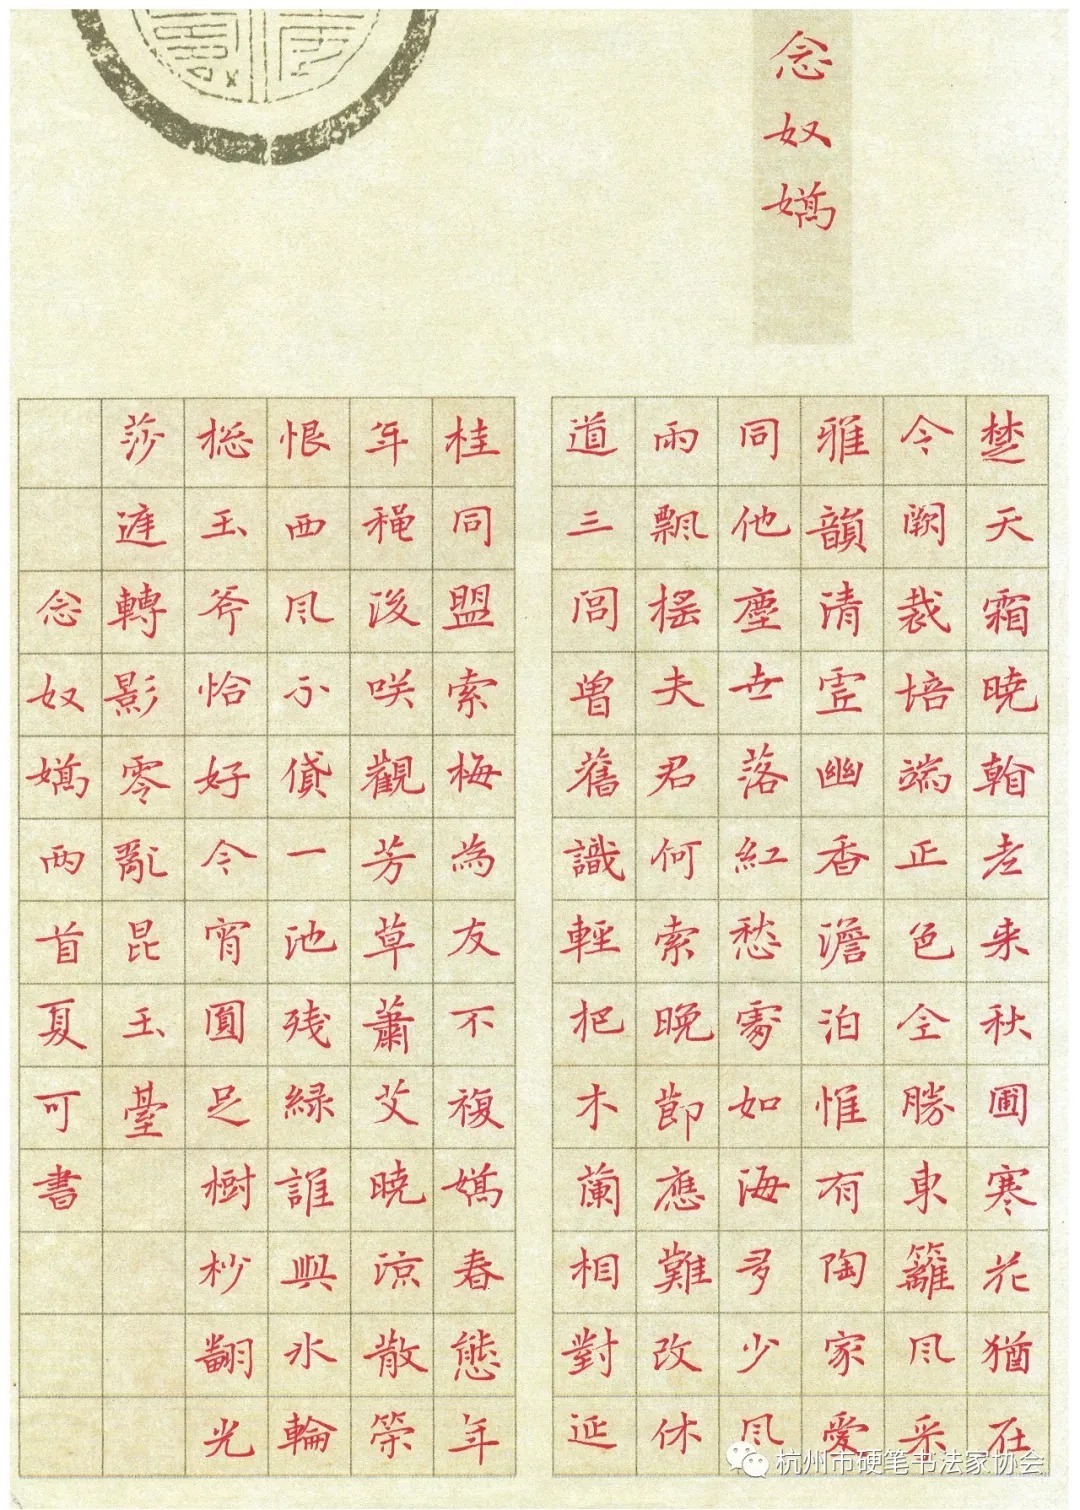 念奴嬌
楚天霜曉翰老来秋圃寒花猶在
今闕裁培端正色全勝東籬風采
雅韻清霊幽香澹泊惟有陶家愛
同他塵世落紅愁霧如海多少風
雨飄榣夫君何索晚節應難改休
道三閭曽舊識輕把木蘭相對延
桂同盟索梅為友不複嬌春態年
年穐後咲觀芳草蕭艾曉涼散榮
恨西風不貸一池残緑誰與氷輪
揔玉斧恰好今宵圓足樹杪翻光
莎遮轉影零亂昆玉臺
念奴嬌两首夏可書
杭州市硬笔书法家协会